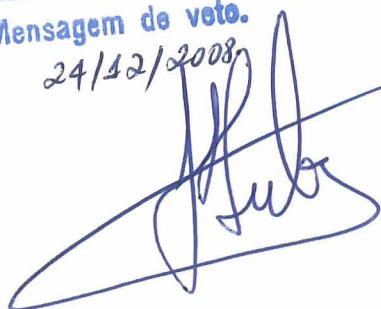 Mensagem de veto.
24/12/2008